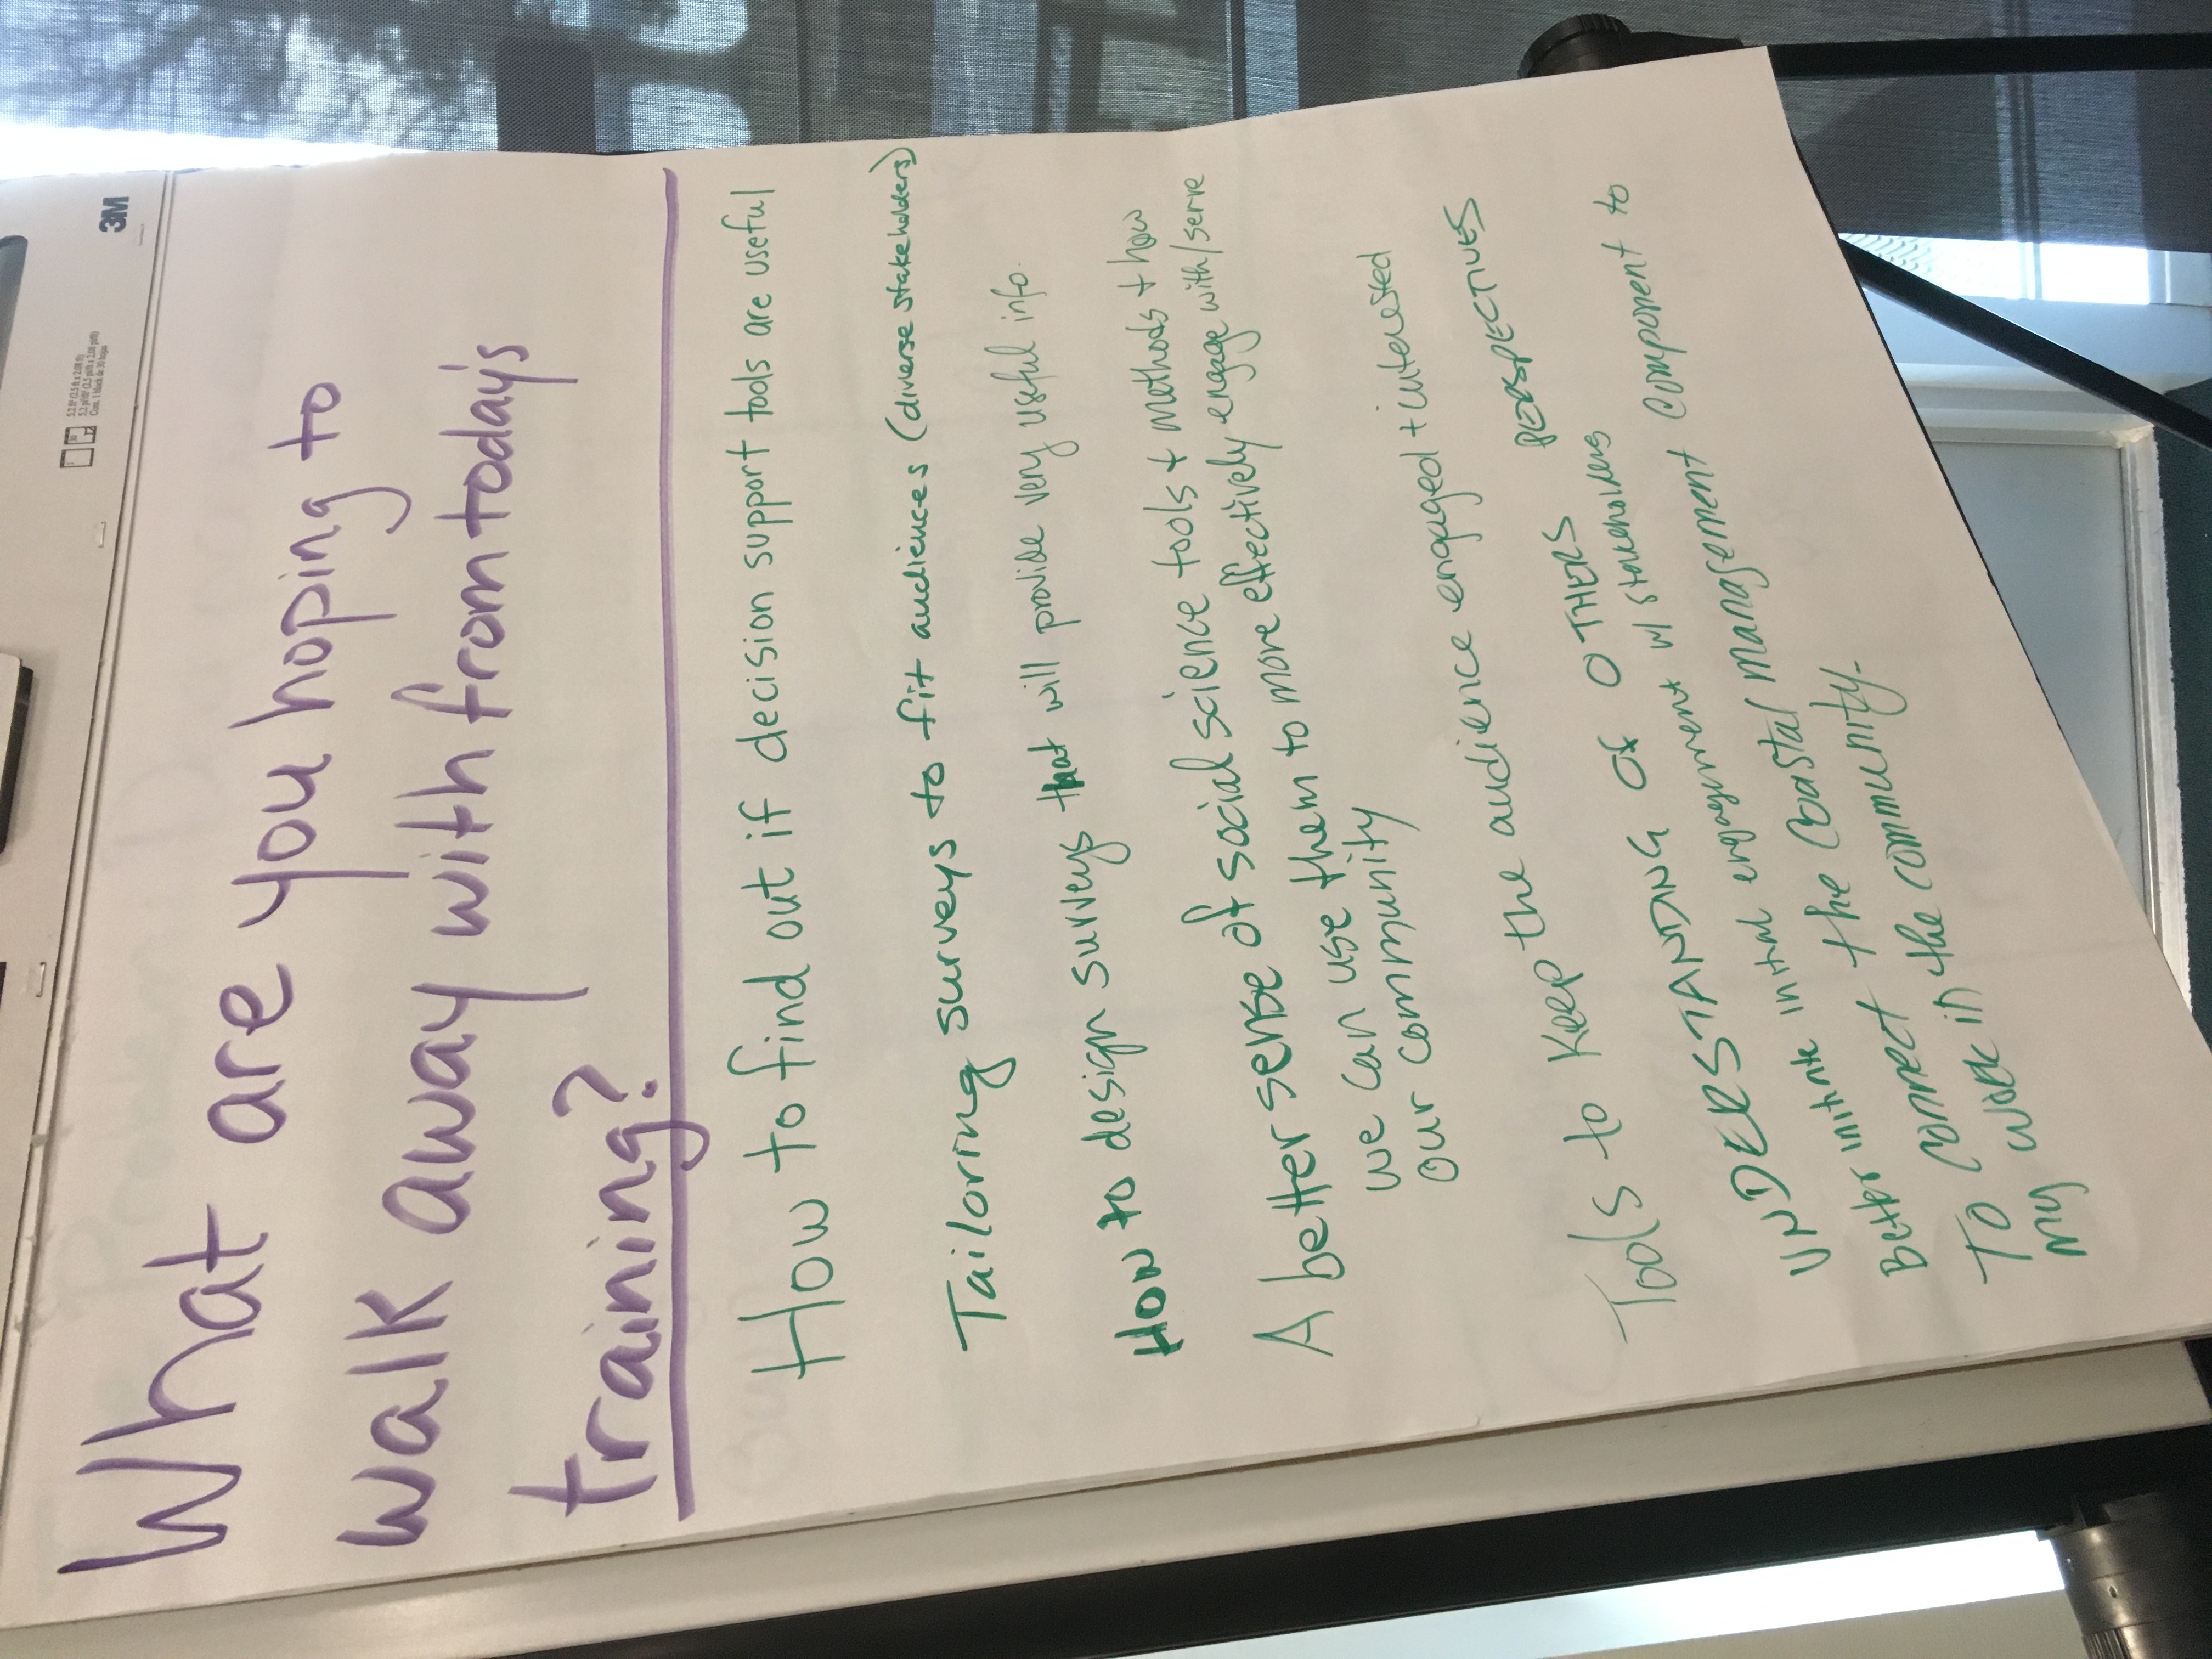 5.2 ft² (2.5 ft x 2.08 ft)
3M
What are you hoping to
walk away with from today's
training?
How to find out if decision support tools are useful
Tailoring surveys to fit audiences (diverse stakeholders)
How to design surveys that will provide very useful info.
A better sense of social science tools + methods + how
we can use them to more effectively engage with/serve
our community
Tools to keep the audience engaged + interested
UNDERSTANDING OF OTHERS PERSPECTIVES
Better initiate initial engagement w/ stakeholders
To connect the Coastal Management Component to
my work in the community.